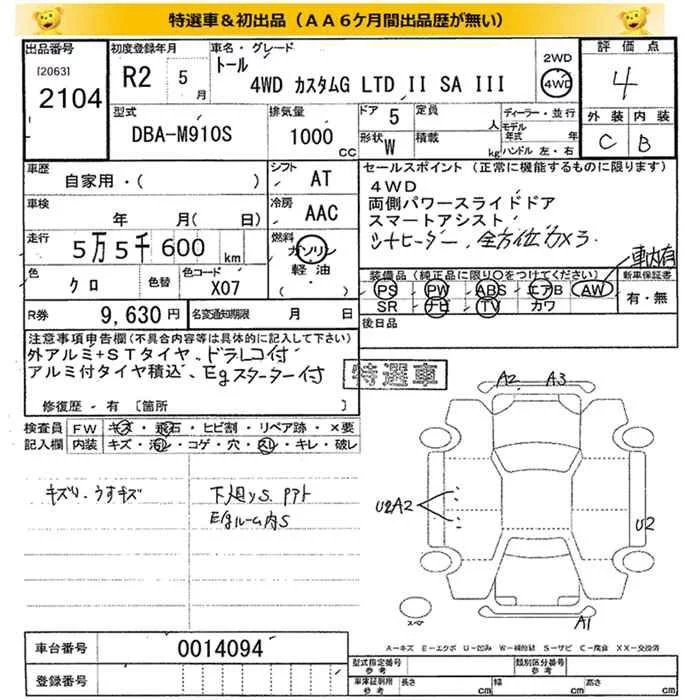 特選車＆初出品（ＡＡ６ケ月間出品歴が無い）
出品番号
[2063]
2104
初度登録年月
R2 5月
車名・グレード
トール
4WD カスタムG LTD II SA III
2WD
4WD
評価点
4
外装 内装
C B
型式
DBA-M910S
排気量
1000 CC
ドア 5
定員 人
形状 W
積載 kg
ディーラー・並行
モデル年式 年
ハンドル 左・右
車歴
自家用・( )
シフト
AT
車検
年 月( 日)
冷房
AAC
走行
5万5千600 km
燃料
ガソリン
軽油
( )
色
クロ
色替
色コード
X07
R券 9,630円
名変通知期限 月 日
セールスポイント（正常に機能するものに限ります）
４ＷＤ
両側パワースライドドア
スマートアシスト
シートヒーター、全方位カメラ
車内有
装備品（純正品に限り○をつけてください）
PS PW ABS エアB AW
SR ナビ TV カワ
新車保証書
有・無
後日品
注意事項申告欄（不具合内容等は具体的に記入して下さい）
外アルミ+STタイヤ、ドラレコ付
アルミ付タイヤ積込、Egスターター付
修復歴・有 〔箇所 〕
特選車
検査員記入欄
FW キズ・飛石・ヒビ割・リペア跡・×要
内装 キズ・汚レ・コゲ・穴・スレ・キレ・破レ
キズ小、うすキズ
下廻りS. PPト
Egルーム内S
A2 A3
U2A2
U2
A1
スペア
A-キズ E-エクボ U-凹み W-補修跡 S-サビ C-腐食 XX-交換済
車台番号 0014094
登録番号
型式指定番号 参考
類別区分番号 参考
車庫証明用 参考
長さ cm
幅 cm
高さ cm